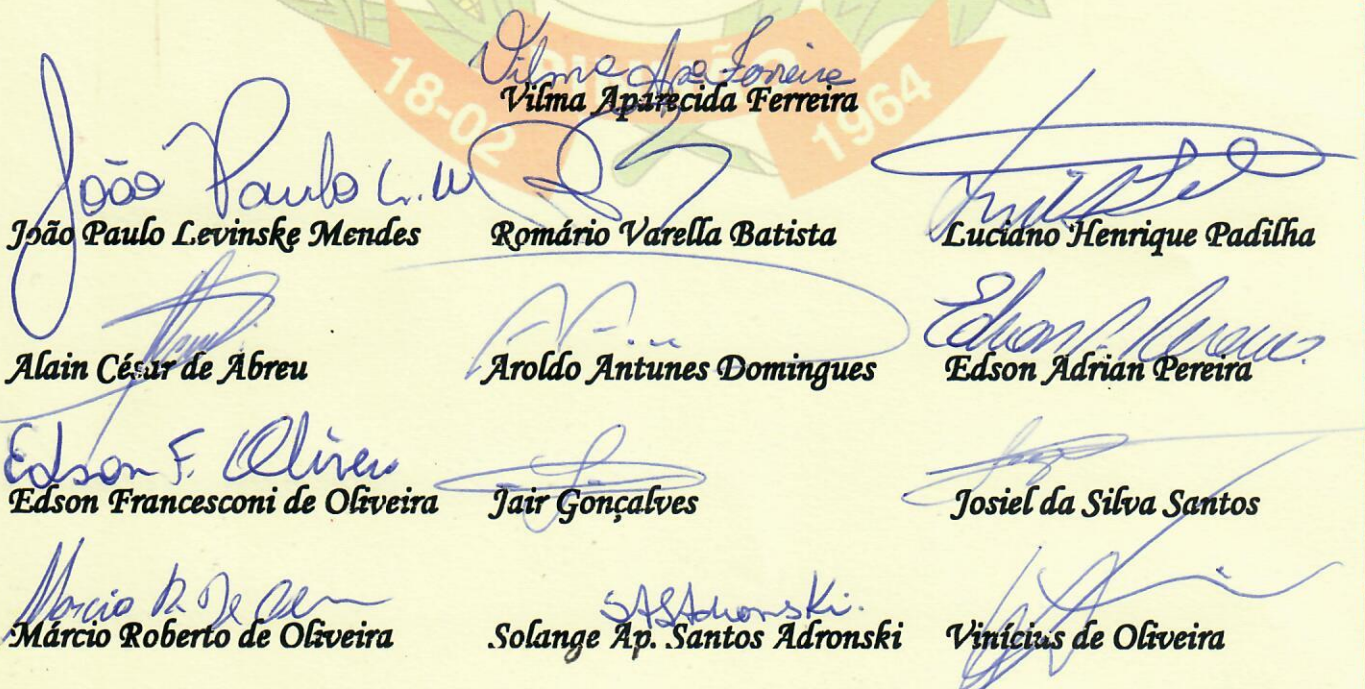 PINHÃO
18-02 1964
Vilma Apa Ferreira
Vilma Aparecida Ferreira
João Paulo L. M
João Paulo Levinske Mendes Romário Varella Batista Luciano Henrique Padilha
Alain César de Abreu Aroldo Antunes Domingues Edson Adrian Pereira
Edson F. Oliveira
Edson Francesconi de Oliveira Jair Gonçalves Josiel da Silva Santos
Marcio R. De SASAdronski.
Márcio Roberto de Oliveira Solange Ap. Santos Adronski Vinícius de Oliveira